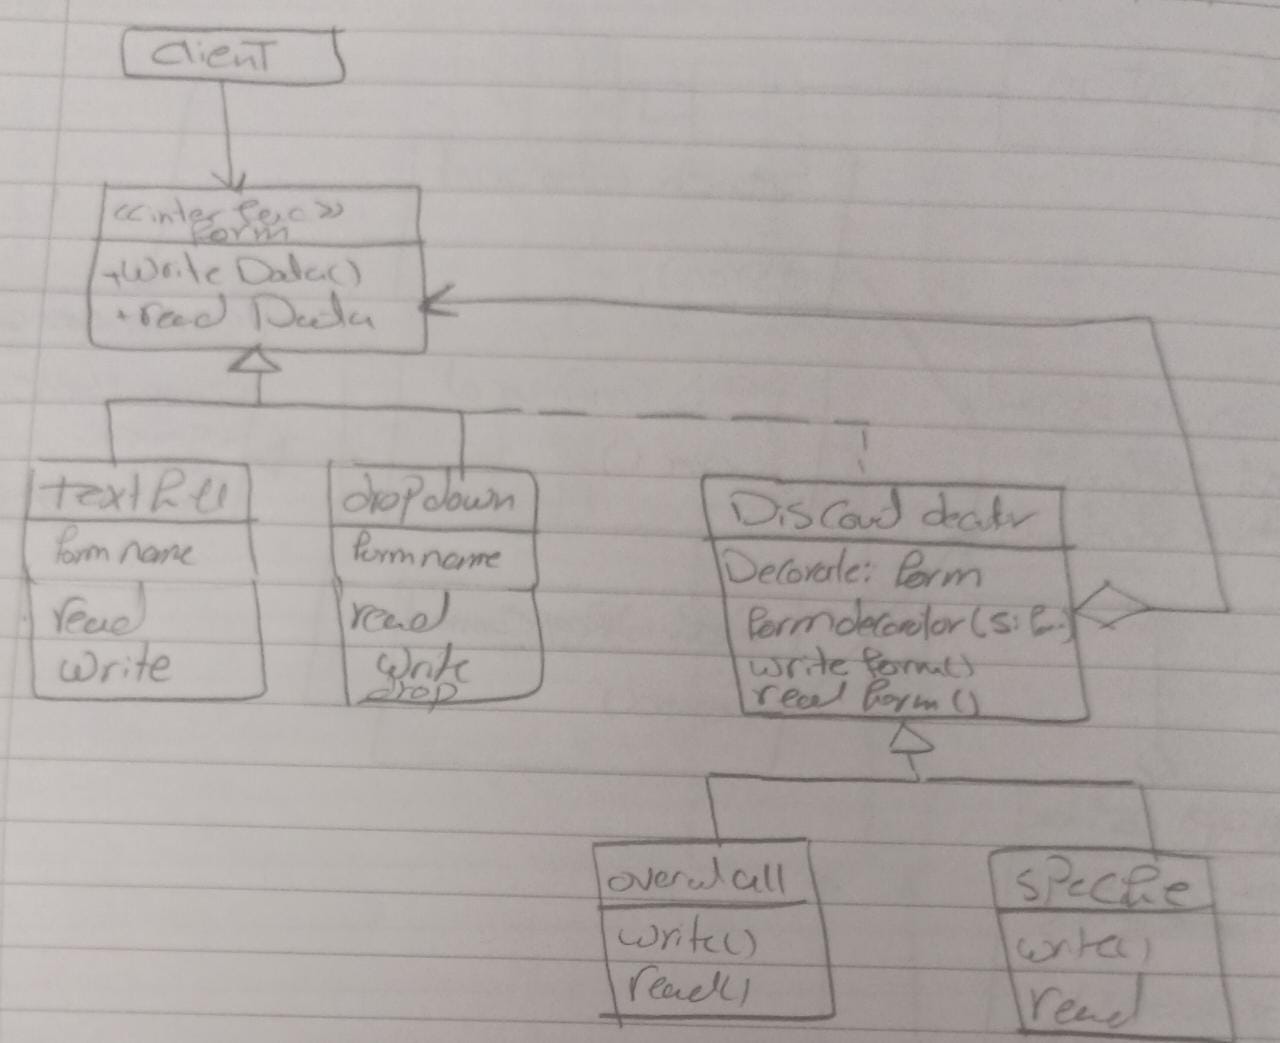 Client
<<interfac>>
Form
+Write Data()
+read Data
textfill
form name
read
write
dropdown
formname
read
write
drop
Discoud
Decorate: form
formdecorator(s:F.)
write form()
read form()
overalall
write()
read()
specfie
write()
read